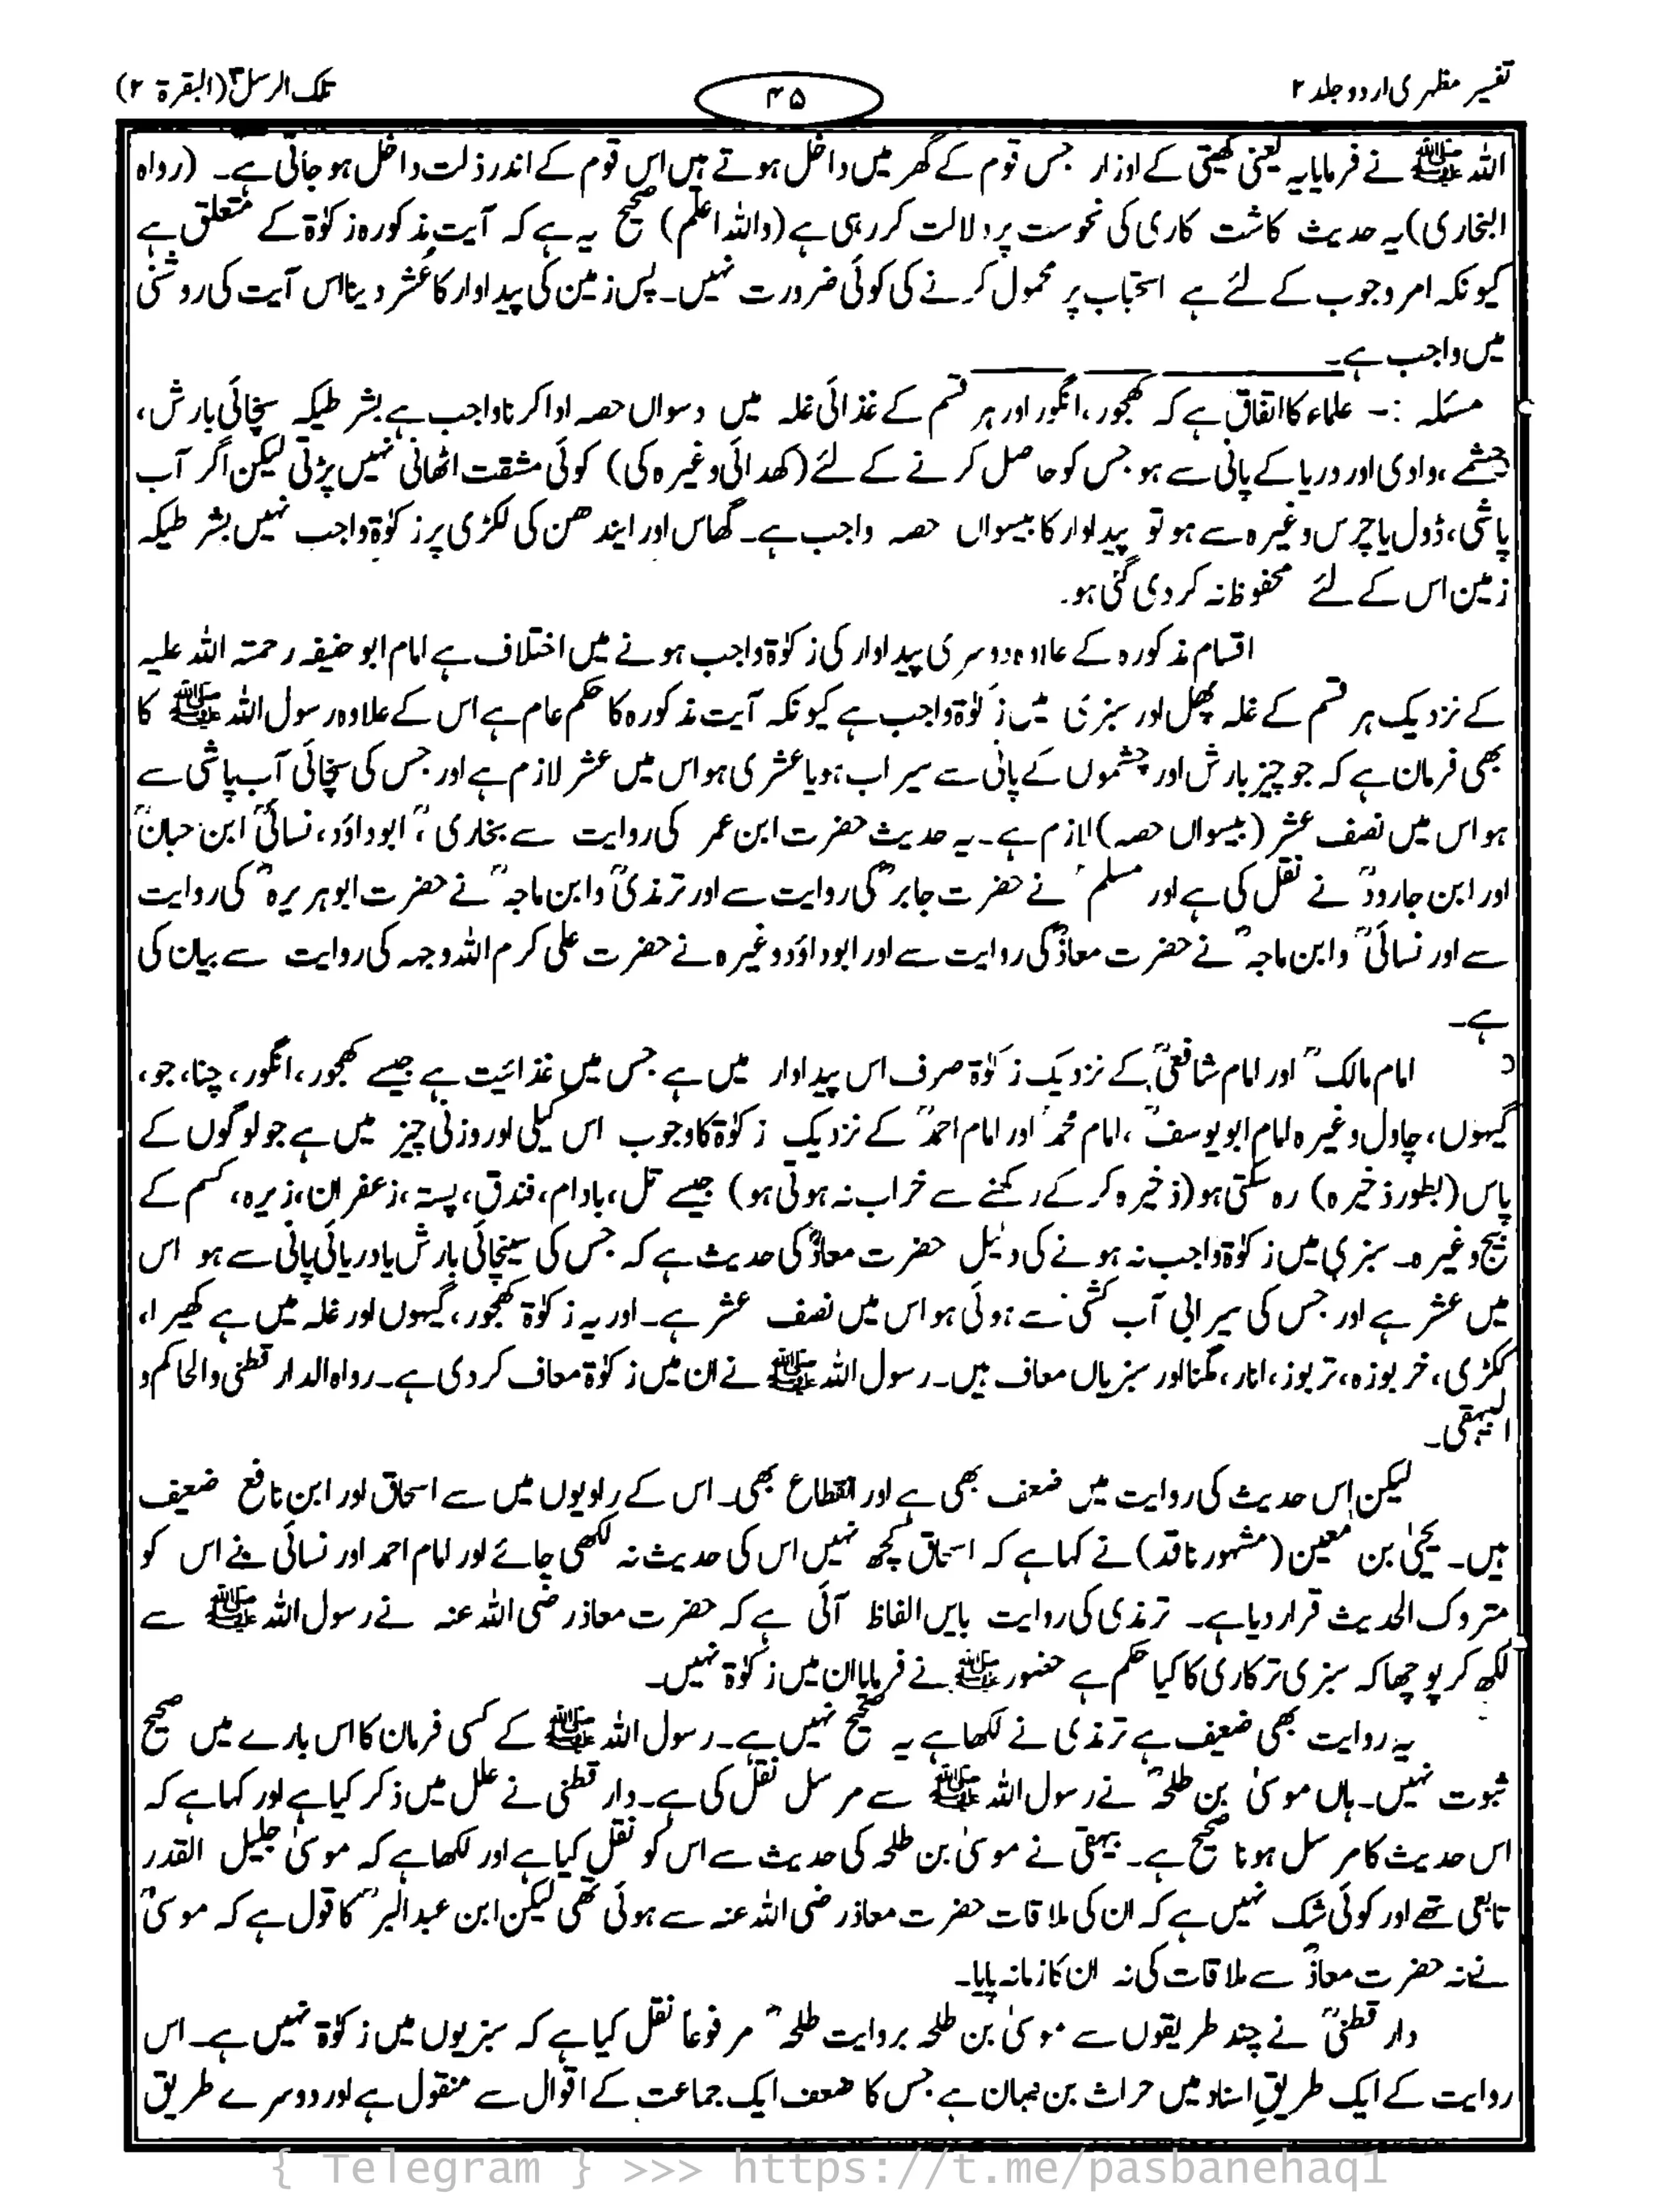 تفسیر مظہری اردو جلد ۲
۴۵
تلک الرسل ۳ (البقرۃ ۲)
اللہ ﷺ نے فرمایا یہ یعنی کھیتی کے اوزار جس قوم کے گھر میں داخل ہوتے ہیں اس قوم کے اندر ذلت داخل ہو جاتی ہے۔ (رواہ
البخاری) یہ حدیث کاشت کاری کی نحوست پر دلالت کر رہی ہے (واللہ اعلم) صحیح یہ ہے کہ آیت مذکورہ زکوٰۃ کے متعلق ہے
کیونکہ امر وجوب کے لئے ہے استحباب پر محمول کرنے کی کوئی ضرورت نہیں۔ پس زمین کی پیداوار کا عُشر دینا اس آیت کی روشنی
میں واجب ہے۔
مسئلہ :- علماء کا اتفاق ہے کہ کھجور، انگور اور ہر قسم کے غذائی غلہ میں دسواں حصہ ادا کرنا واجب ہے بشرطیکہ سنچائی بارش،
چشمے، وادی اور دریا کے پانی سے ہو جس کو حاصل کرنے کے لئے (کھدائی وغیرہ کی) کوئی مشقت اٹھانی نہیں پڑتی لیکن اگر آب
پاشی، ڈول یا چرس وغیرہ سے ہو تو پیداوار کا بیسواں حصہ واجب ہے۔ گھاس اور ایندھن کی لکڑی پر زکوٰۃ واجب نہیں بشرطیکہ
زمین اس کے لئے محفوظ نہ کر دی گئی ہو۔
اقسام مذکورہ کے علاوہ دوسری پیداوار کی زکوٰۃ واجب ہونے میں اختلاف ہے امام ابو حنیفہ رحمتہ اللہ علیہ
کے نزدیک ہر قسم کے غلہ پھل اور سبزی میں زکوٰۃ واجب ہے کیونکہ آیت مذکورہ کا حکم عام ہے اس کے علاوہ رسول اللہ ﷺ کا
بھی فرمان ہے کہ جو چیز بارش اور چشموں کے پانی سے سیراب ہو یا عشری ہو اس میں عشر لازم ہے اور جس کی سنچائی آب پاشی سے
ہو اس میں نصف عشر (بیسواں حصہ) لازم ہے۔ یہ حدیث حضرت ابن عمر کی روایت سے بخاریؒ، ابوداؤد، نسائیؒ ابن حبانؒ
اور ابن جارودؒ نے نقل کی ہے اور مسلمؒ نے حضرت جابرؓ کی روایت سے اور ترمذیؒ وابن ماجہؒ نے حضرت ابوہریرہؓ کی روایت
سے اور نسائیؒ وابن ماجہؒ نے حضرت معاذؓ کی روایت سے اور ابوداؤد وغیرہ نے حضرت علی کرم اللہ وجہہ کی روایت سے بیان کی
ہے۔
امام مالکؒ اور امام شافعیؒ کے نزدیک زکوٰۃ صرف اس پیداوار میں ہے جس میں غذائیت ہے جیسے کھجور، انگور، چنا، جو،
گیہوں، چاول وغیرہ امام ابو یوسفؒ، امام محمدؒ اور امام احمدؒ کے نزدیک زکوٰۃ کا وجوب اس کیلی اور وزنی چیز میں ہے جو لوگوں کے
پاس (بطور ذخیرہ) رہ سکتی ہو (ذخیرہ کر کے رکھنے سے خراب نہ ہوتی ہو) جیسے تل، بادام، فندق، پستہ، زعفران، زیرہ، کسم کے
بیج وغیرہ۔ سبزی میں زکوٰۃ واجب نہ ہونے کی دلیل حضرت معاذؓ کی حدیث ہے کہ جس کی سینچائی بارش یا دریائی پانی سے ہو اس
میں عشر ہے اور جس کی سیرابی آب کشی سے ہوئی ہو اس میں نصف عشر ہے۔ اور یہ زکوٰۃ کھجور، گیہوں اور غلہ میں ہے کھیرا،
ککڑی، خربوزہ، تربوز، انار، گنا اور سبزیاں معاف ہیں۔ رسول اللہ ﷺ نے ان میں زکوٰۃ معاف کر دی ہے۔ رواہ الدار قطنی والحاکم و
البیہقی۔
لیکن اس حدیث کی روایت میں ضعف بھی ہے اور انقطاع بھی۔ اس کے راویوں میں سے اسحاق اور ابن نافع ضعیف
ہیں۔ یحییٰ بن معین (مشہور ناقد) نے کہا ہے کہ اسحاق کچھ نہیں اس کی حدیث نہ لکھی جائے اور امام احمد اور نسائی نے اس کو
متروک الحدیث قرار دیا ہے۔ ترمذی کی روایت بایں الفاظ آئی ہے کہ حضرت معاذ رضی اللہ عنہ نے رسول اللہ ﷺ سے
لکھ کر پوچھا کہ سبزی ترکاری کا کیا حکم ہے حضور ﷺ نے فرمایا ان میں زکوٰۃ نہیں۔
یہ روایت بھی ضعیف ہے ترمذی نے لکھا ہے یہ صحیح نہیں ہے۔ رسول اللہ ﷺ کے کسی فرمان کا اس بارے میں صحیح
ثبوت نہیں۔ ہاں موسیٰ بن طلحہؓ نے رسول اللہ ﷺ سے مرسل نقل کی ہے۔ دار قطنی نے علل میں ذکر کیا ہے اور کہا ہے کہ
اس حدیث کا مرسل ہونا صحیح ہے۔ بیہقی نے موسیٰ بن طلحہ کی حدیث سے اس کو نقل کیا ہے اور لکھا ہے کہ موسیٰ جلیل القدر
تابعی تھے اور کوئی شک نہیں ہے کہ ان کی ملاقات حضرت معاذ رضی اللہ عنہ سے ہوئی تھی لیکن ابن عبد البرؒ کا قول ہے کہ موسیٰؒ
نے نہ حضرت معاذؓ سے ملاقات کی نہ ان کا زمانہ پایا۔
دار قطنیؒ نے چند طریقوں سے موسیٰ بن طلحہ بروایت طلحہؓ مرفوعاً نقل کیا ہے کہ سبزیوں میں زکوٰۃ نہیں ہے۔ اس
روایت کے ایک طریق اسناد میں حراث بن نبہان ہے جس کا ضعف ایک جماعت کے اقوال سے منقول ہے اور دوسرے طریق
{ Telegram } >>> https://t.me/pasbanehaq1